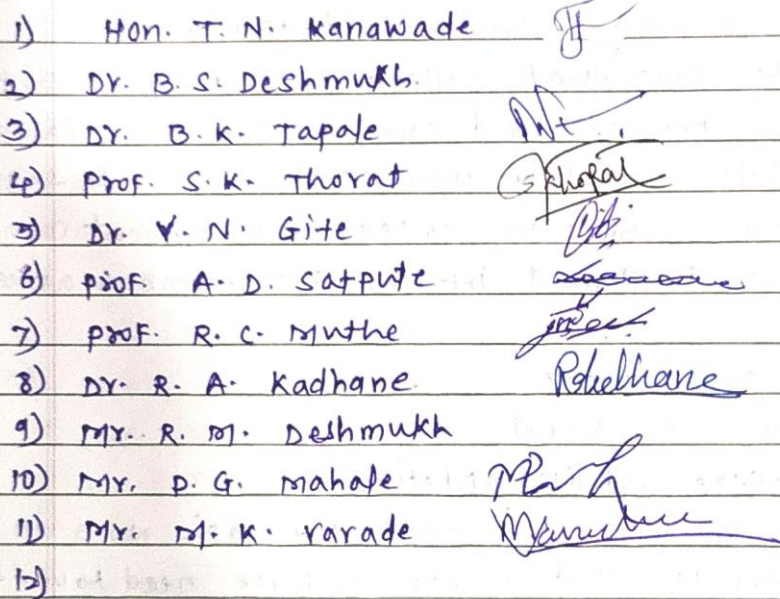 1) Hon. T. N. Kanawade
2) Dr. B. S. Deshmukh.
3) Dr. B. K. Tapale
4) Prof. S. K. Thorat
5) Dr. V. N. Gite
6) Prof. A. D. Satpute
7) Prof. R. C. Muthe
8) Dr. R. A. Kadhane
9) Mr. R. M. Deshmukh
10) Mr. D. G. Mahale
11) Mr. M. K. Varade
12)